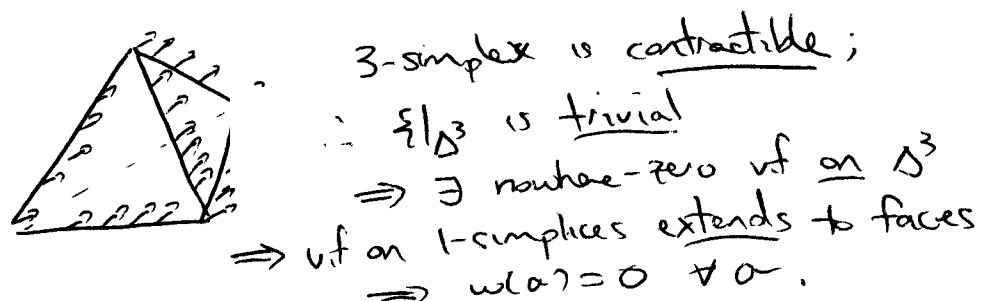 3-simplex is contractible;
∴ ξ|Δ³ is trivial
⇒ ∃ nowhere-zero vf on Δ³
⇒ vf on 1-simplices extends to faces
⇒ w(σ) = 0 ∀ σ.